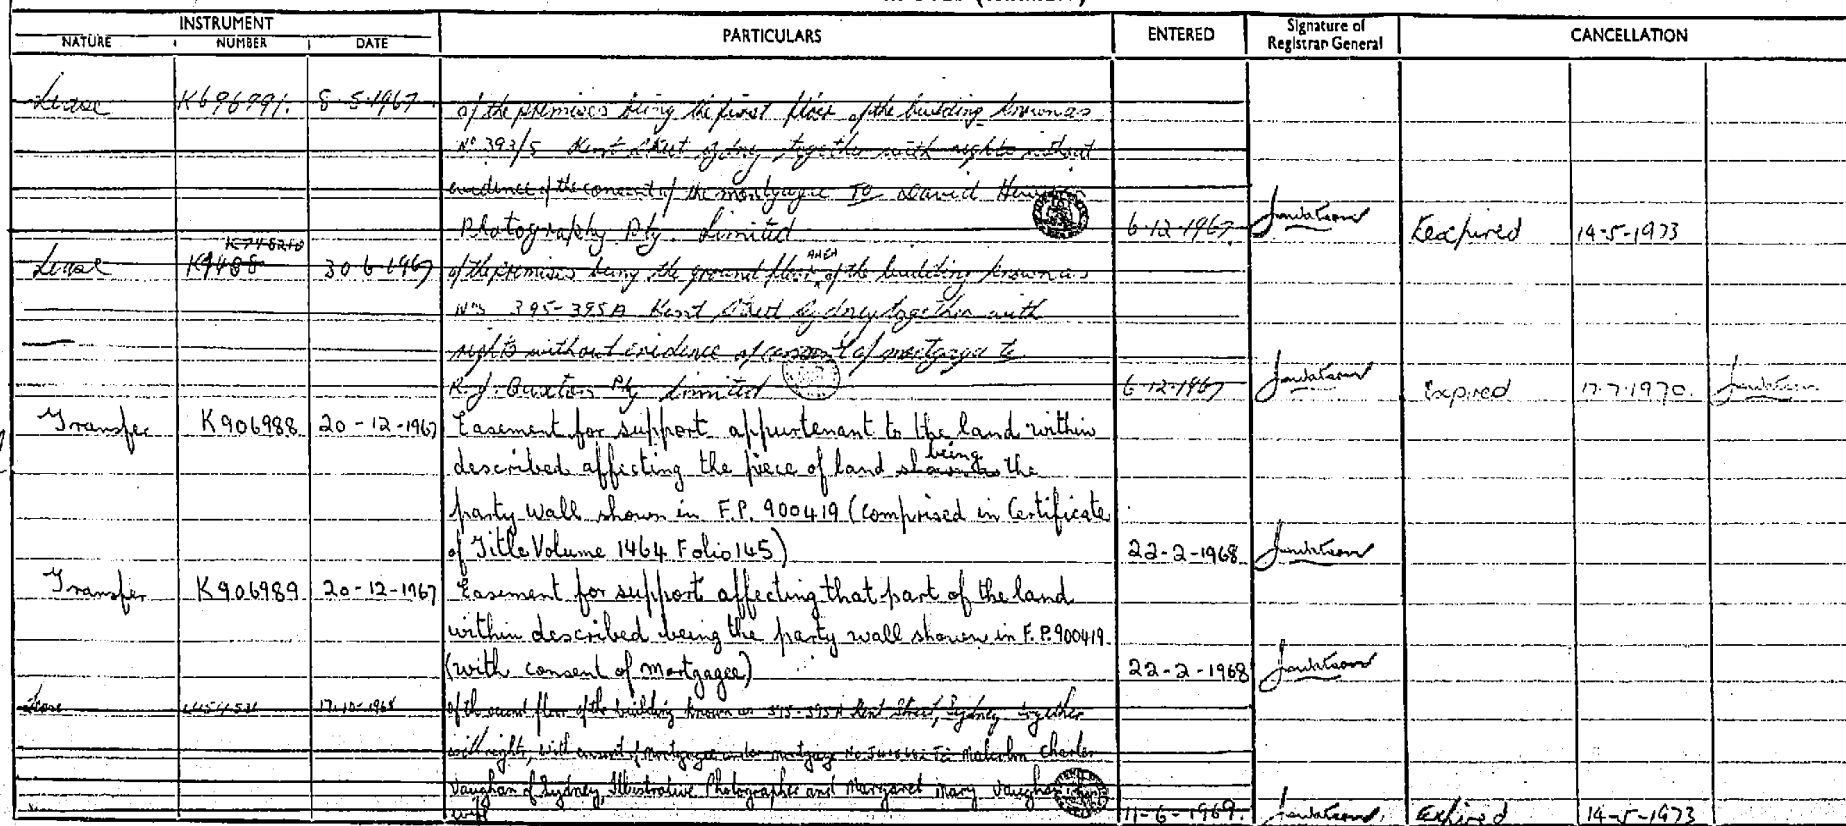 INSTRUMENT
NATURE NUMBER DATE PARTICULARS ENTERED Signature of Registrar General CANCELLATION
Lease K696791. 8-5-1967 of the premises being the first floor of the building known as
No 393/5 Kent Street Sydney together with rights without
evidence of the consent of the mortgagee TO David
Photography Pty. Limited 6-12-1967 Expired 14-5-1973
Lease 30-6-1967 of the premises being the ground floor AREA of the building known as
Nos 395-395A Kent Street Sydney together with
rights without evidence of consent of mortgagee to
R.J. Buxton Pty Limited 6-12-1967 Expired 17-7-1970.
Transfer K906988 20-12-1967 Easement for support appurtenant to the land within
described affecting the piece of land being the
party wall shown in F.P. 900419 (comprised in Certificate
of Title Volume 1464 Folio 145) 22-2-1968
Transfer K906989 20-12-1967 Easement for support affecting that part of the land
within described being the party wall shown in F.P. 900419.
(with consent of mortgagee) 22-2-1968
Lease 17-10-1968 of the second floor of the building known as Kent Street, Sydney together
with rights, with consent of mortgagee under mortgage No. To Malcolm Charles
Vaughan of Sydney, Illustrative Photographer and Margaret Mary Vaughan
wife 11-6-1969. Expired 14-5-1973